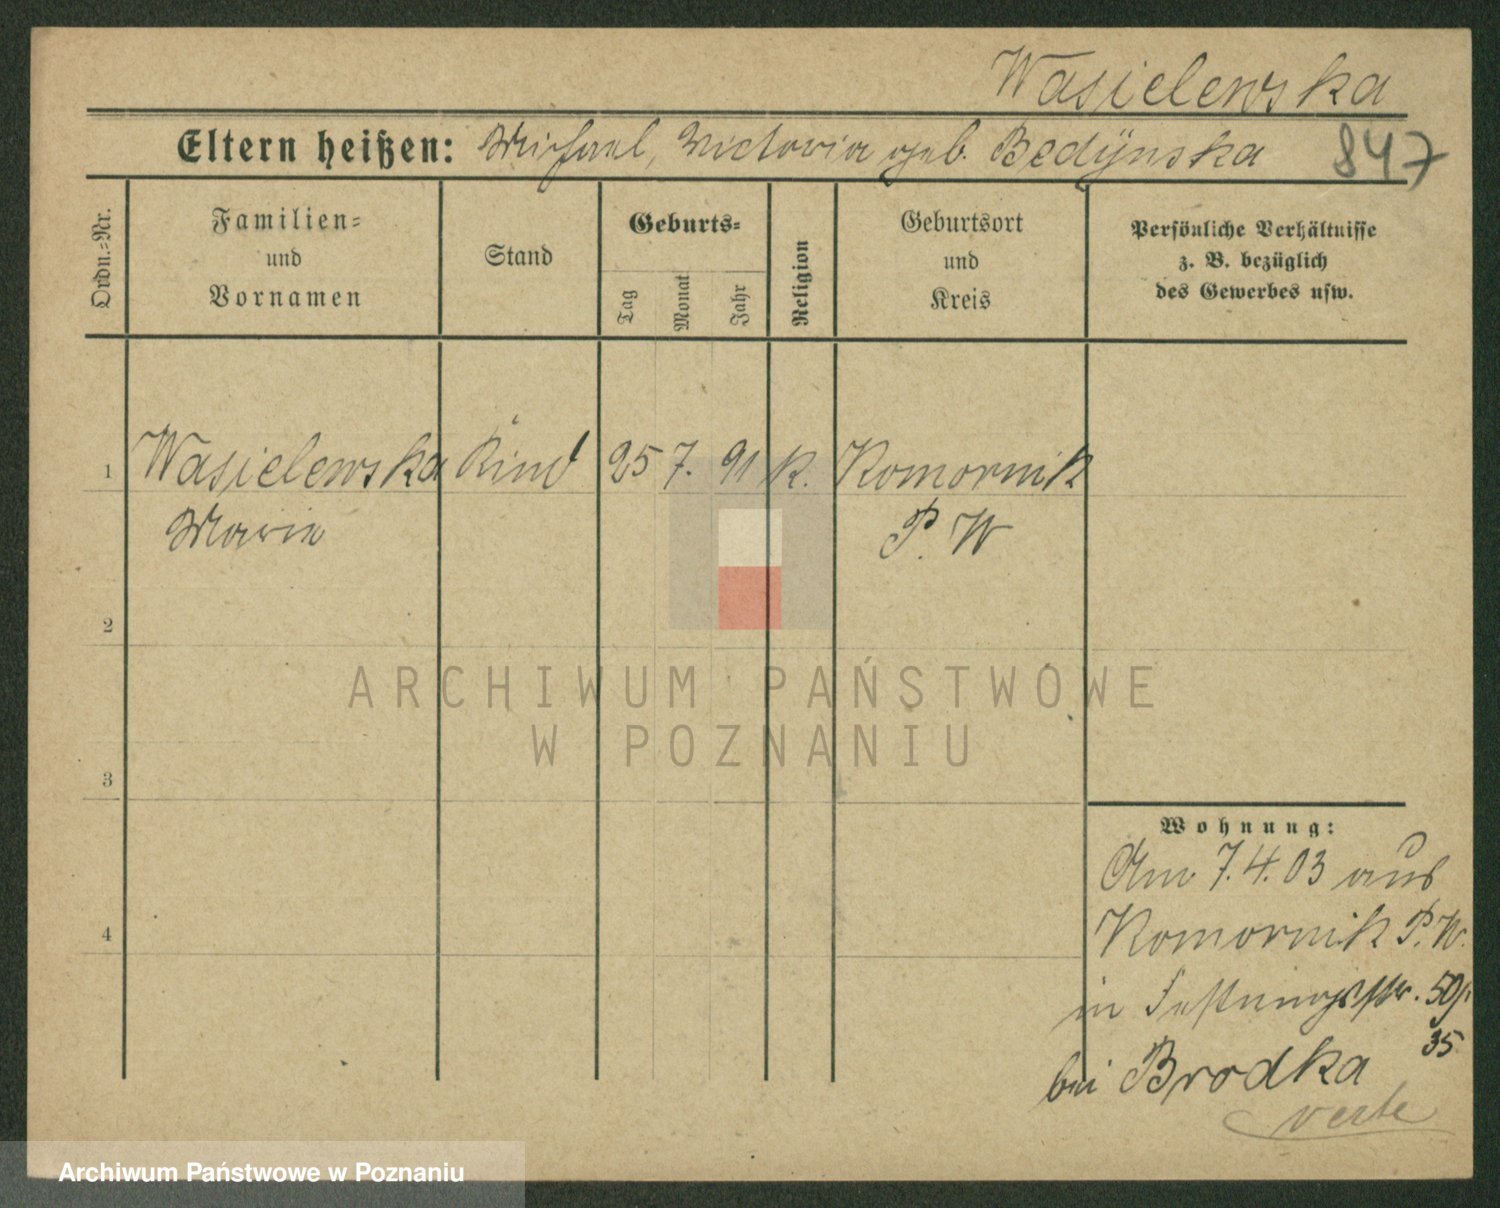 Wasielewska
Eltern heißen: Michael, Victoria geb. Bedÿnska 847
Ordn.=Nr.
Familien=
und
Vornamen
Stand
Geburts=
Tag
Monat
Jahr
Religion
Geburtsort
und
Kreis
Persönliche Verhältnisse
z. B. bezüglich
des Gewerbes usw.
1 Wasielewska Kind 25 7. 91 K. Komornik
Marie P. W
2
ARCHIWUM PAŃSTWOWE
W POZNANIU
3
Wohnung:
Am 7.4.03 aus
4 Komornik P. W.
in Festungsstr. 50
35
bei Brodka
verte
Archiwum Państwowe w Poznaniu